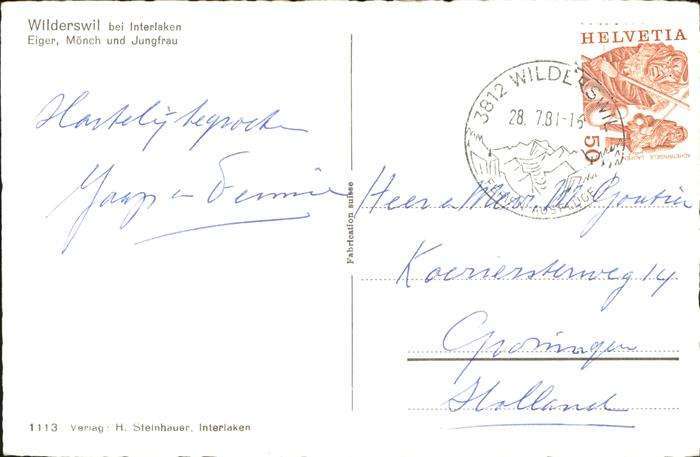 Wilderswil bei Interlaken
Eiger, Mönch und Jungfrau
Hartelijke groeten
Jaap en Dennie
Fabrication suisse
1113 Verlag: H. Steinhauer, Interlaken
HELVETIA
50
3812 WILDERSWIL
28.7.81-16
Heer en Mevr.
Koeriersterweg 14
Groningen
Holland